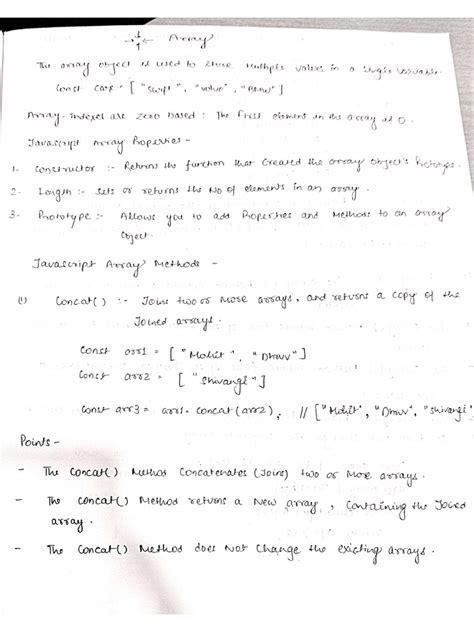 Array
The array object is used to store multiple values in a single variable.
Const cars = [ "swift", "volvo", "BMW" ]
Array indexes are zero based : The First element in the array is 0.
Javascript Array Properties -
1. Constructor :- Returns the function that created the array object's Prototype.
2. Length :- sets or returns the No of elements in an array.
3. Prototype :- Allows you to add Properties and Methods to an array
Object.
Javascript Array Methods -
(1) Concat() :- Joins two or More arrays, and returns a copy of the
Joined arrays.
Const arr1 = [ "Mohit", "Dhruv" ]
Const arr2 = [ "Shivangi" ]
Const arr3 = arr1.concat(arr2), // ["Mohit", "Dhruv", "Shivangi"
Points -
- The Concat() Method Concatenates (Joins) two or More arrays.
- The Concat() Method returns a New array, Containing the Joined
array.
- The Concat() Method does Not Change the existing arrays.